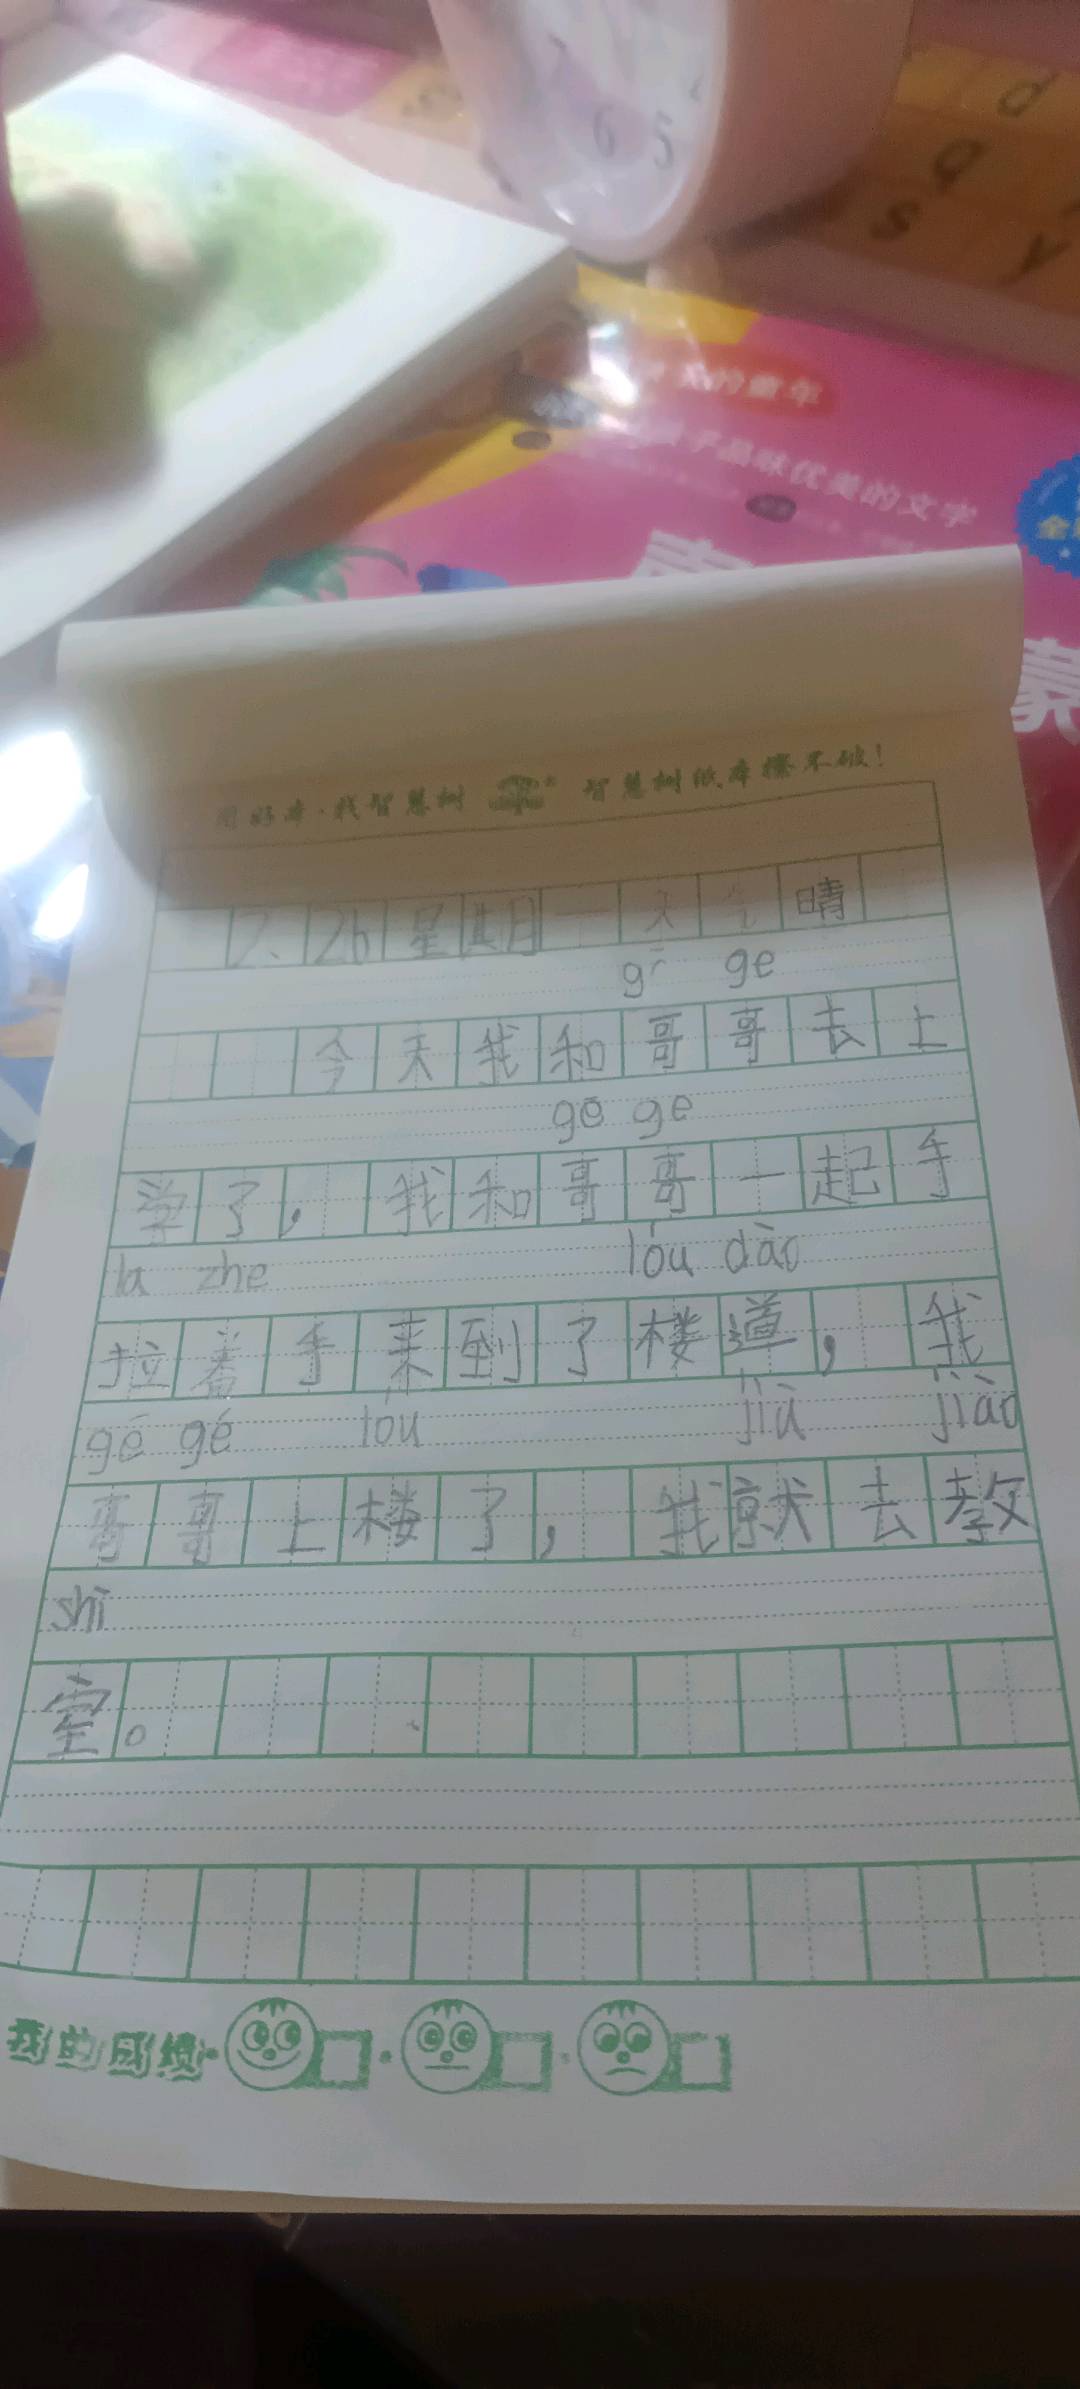 6 5
d
a
s y
的童年
子品味优美的文字
用好本·找智慧树 智慧树纸本擦不破!
2、26 星期一 天气 晴
gē ge
今天我和哥哥去上
gē ge
学了，我和哥哥一起手
la zhe lóu dào
拉着手来到了楼道，我
gē gé lóu jiù jiào
哥哥上楼了，我就去教
shì
室。
我的成绩·